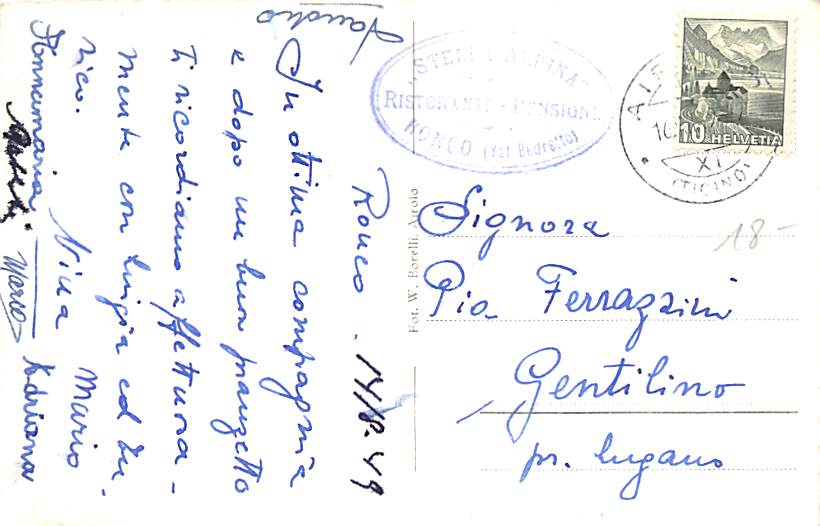 Ronco . 14/8.49
In ottima compagnia
e dopo un buon pranzetto
Ti ricordiamo affettuosa-
mente con Luigia ed En-
rico.
Nina Mario
Annamaria Marco Adriana
Sandro
"STELLA ALPINA"
RISTORANTE - PENSIONE
RONCO (Val Bedretto)
10 HELVETIA
XI
(TICINO)
18-
Fot. W. Borelli, Airolo
Signora
Pia Ferrazzini
Gentilino
pr. Lugano